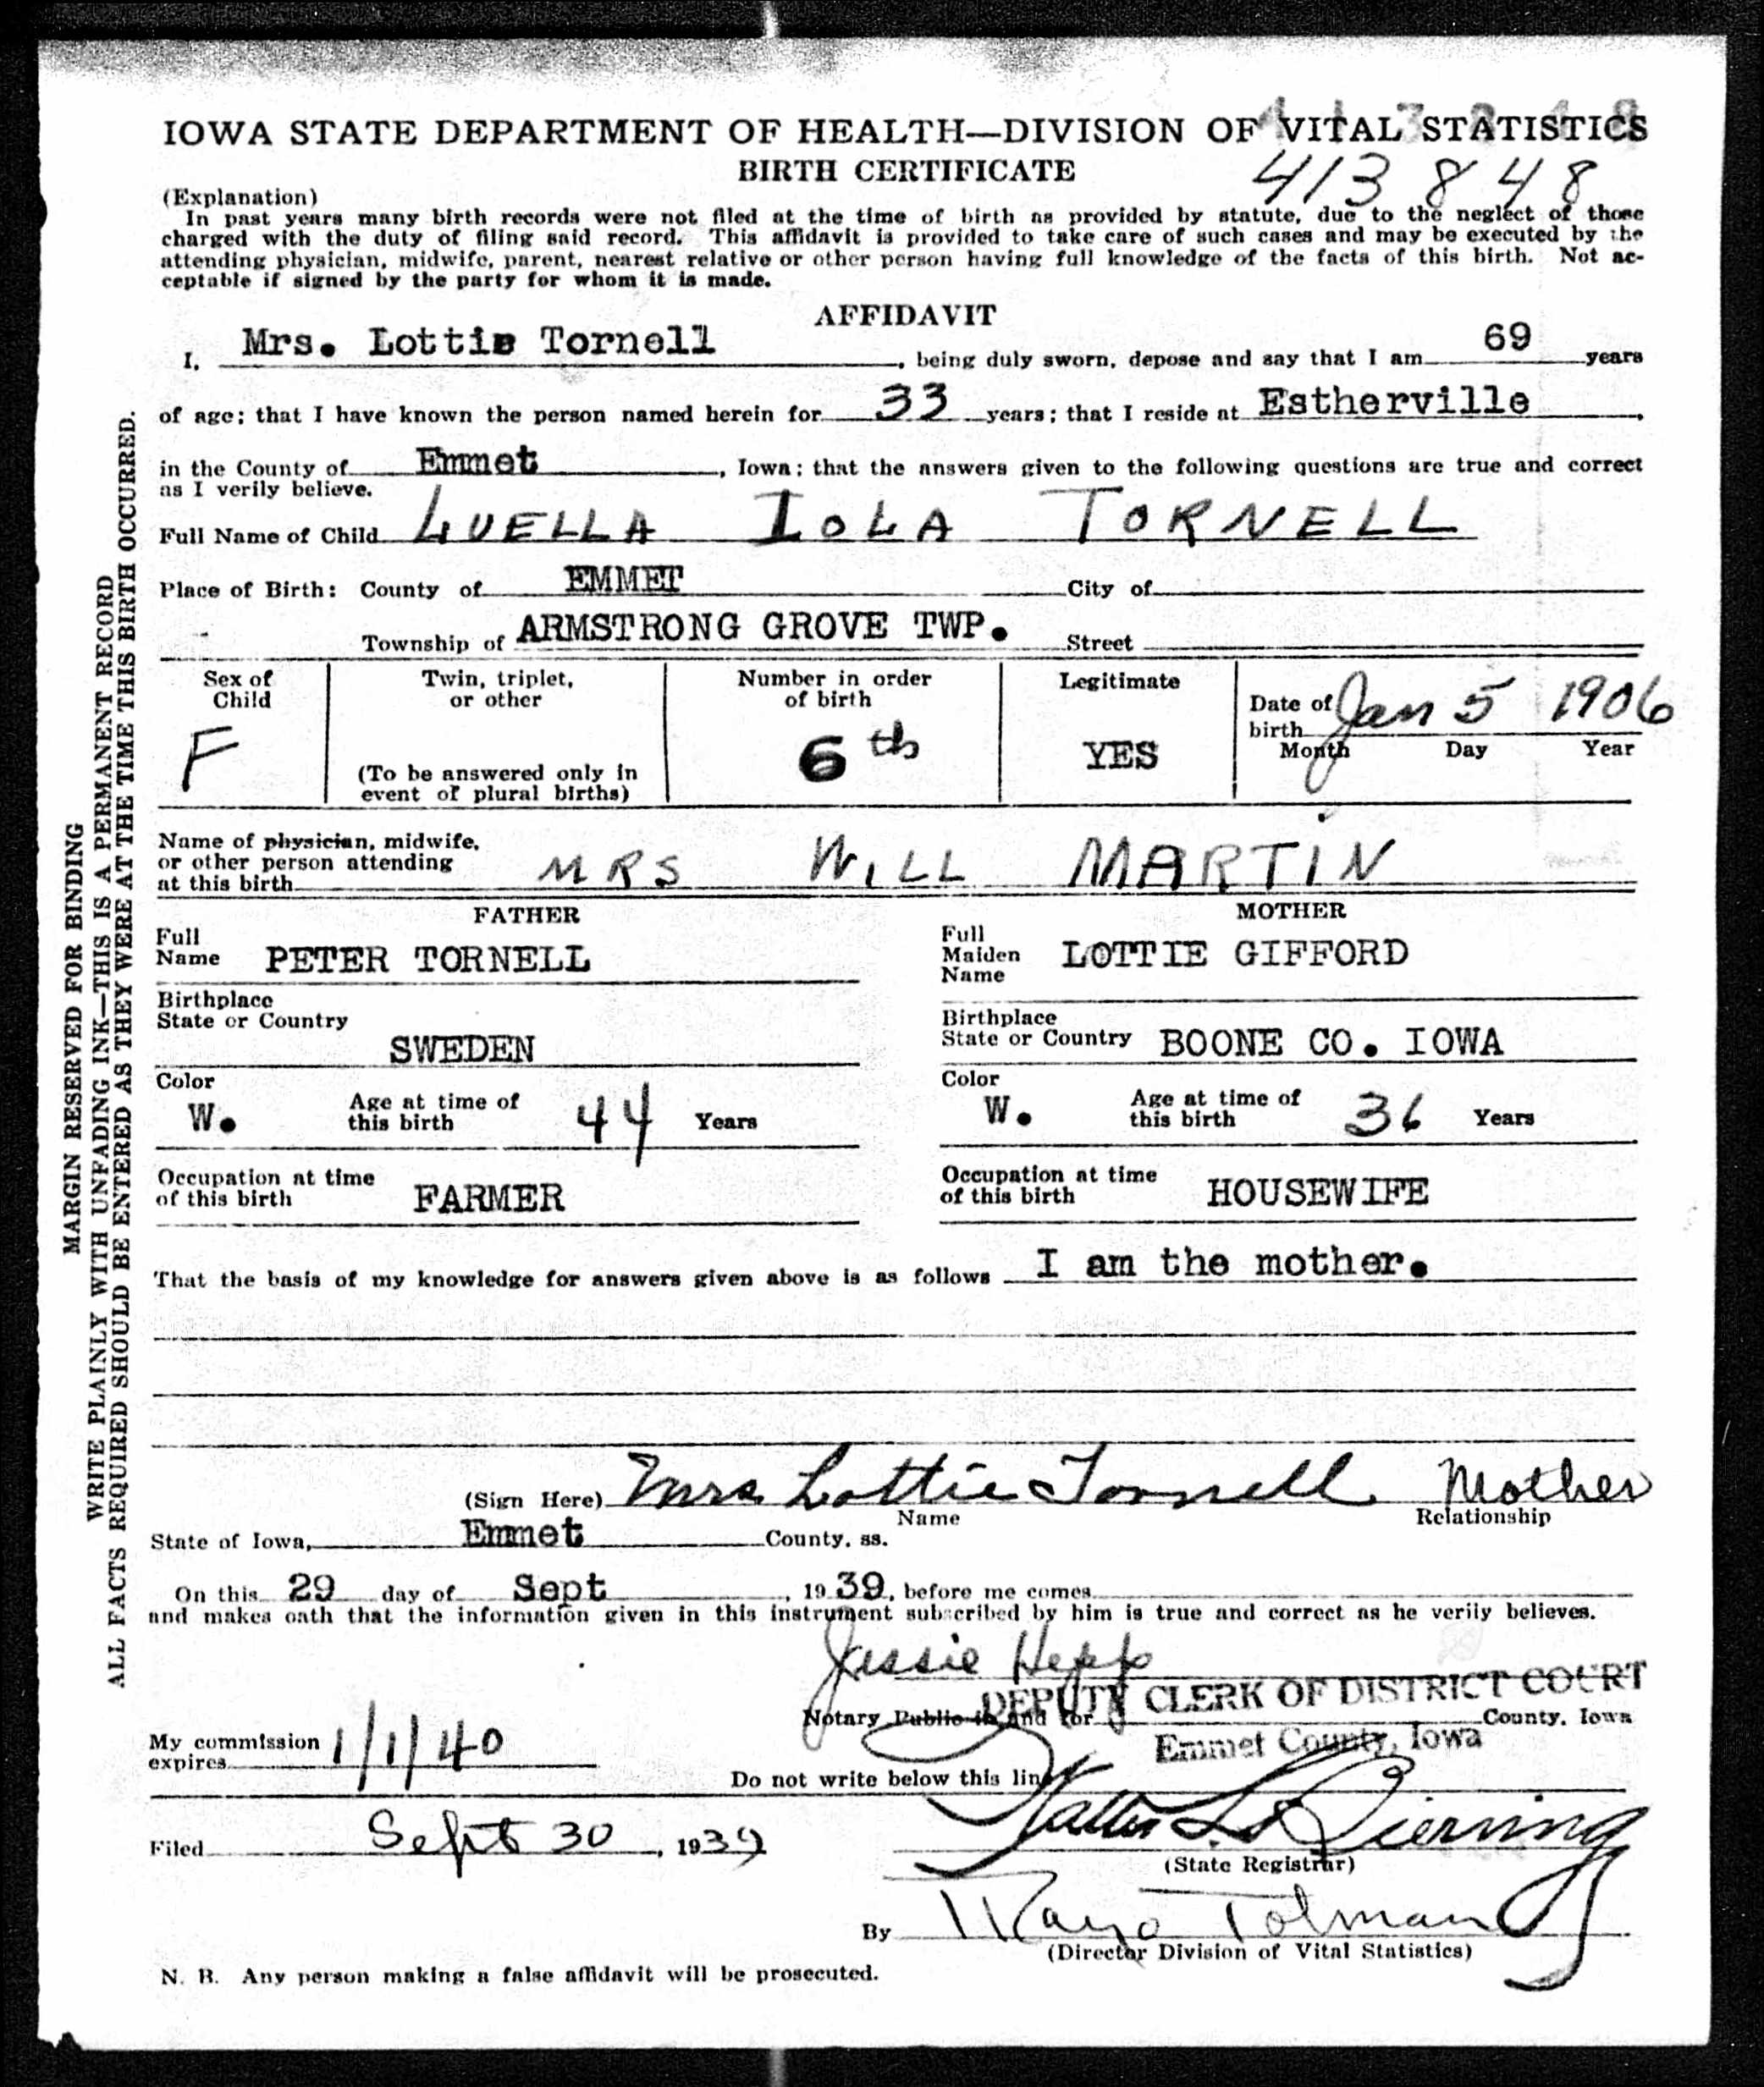 IOWA STATE DEPARTMENT OF HEALTH—DIVISION OF VITAL STATISTICS
BIRTH CERTIFICATE
413848
(Explanation)
In past years many birth records were not filed at the time of birth as provided by statute, due to the neglect of those
charged with the duty of filing said record. This affidavit is provided to take care of such cases and may be executed by the
attending physician, midwife, parent, nearest relative or other person having full knowledge of the facts of this birth. Not ac-
ceptable if signed by the party for whom it is made.
AFFIDAVIT
I, Mrs. Lottie Tornell, being duly sworn, depose and say that I am 69 years
of age; that I have known the person named herein for 33 years; that I reside at Estherville,
in the County of Emmet, Iowa; that the answers given to the following questions are true and correct
as I verily believe.
Full Name of Child LUELLA IOLA TORNELL
Place of Birth: County of EMMET City of
Township of ARMSTRONG GROVE TWP. Street
Sex of Child F
Twin, triplet, or other
(To be answered only in event of plural births)
Number in order of birth 6th
Legitimate YES
Date of birth Jan 5 1906
Month Day Year
Name of physician, midwife,
or other person attending
at this birth MRS WILL MARTIN
FATHER
Full Name PETER TORNELL
Birthplace
State or Country
SWEDEN
Color W. Age at time of this birth 44 Years
Occupation at time of this birth FARMER
MOTHER
Full Maiden Name LOTTIE GIFFORD
Birthplace
State or Country BOONE CO. IOWA
Color W. Age at time of this birth 36 Years
Occupation at time of this birth HOUSEWIFE
That the basis of my knowledge for answers given above is as follows I am the mother.
(Sign Here) Mrs Lottie Tornell Mother
Name Relationship
State of Iowa, Emmet County, ss.
On this 29 day of Sept, 1939, before me comes
and makes oath that the information given in this instrument subscribed by him is true and correct as he verily believes.
Jessie Hepp
DEPUTY CLERK OF DISTRICT COURT
Notary Public in and for County, Iowa
Emmet County, Iowa
My commission expires 1/1/40
Do not write below this line
Filed Sept 30, 1939
Walter L. Bierring
(State Registrar)
By Mayo Tolman
(Director Division of Vital Statistics)
N. B. Any person making a false affidavit will be prosecuted.
MARGIN RESERVED FOR BINDING
WRITE PLAINLY WITH UNFADING INK—THIS IS A PERMANENT RECORD
ALL FACTS REQUIRED SHOULD BE ENTERED AS THEY WERE AT THE TIME THIS BIRTH OCCURRED.